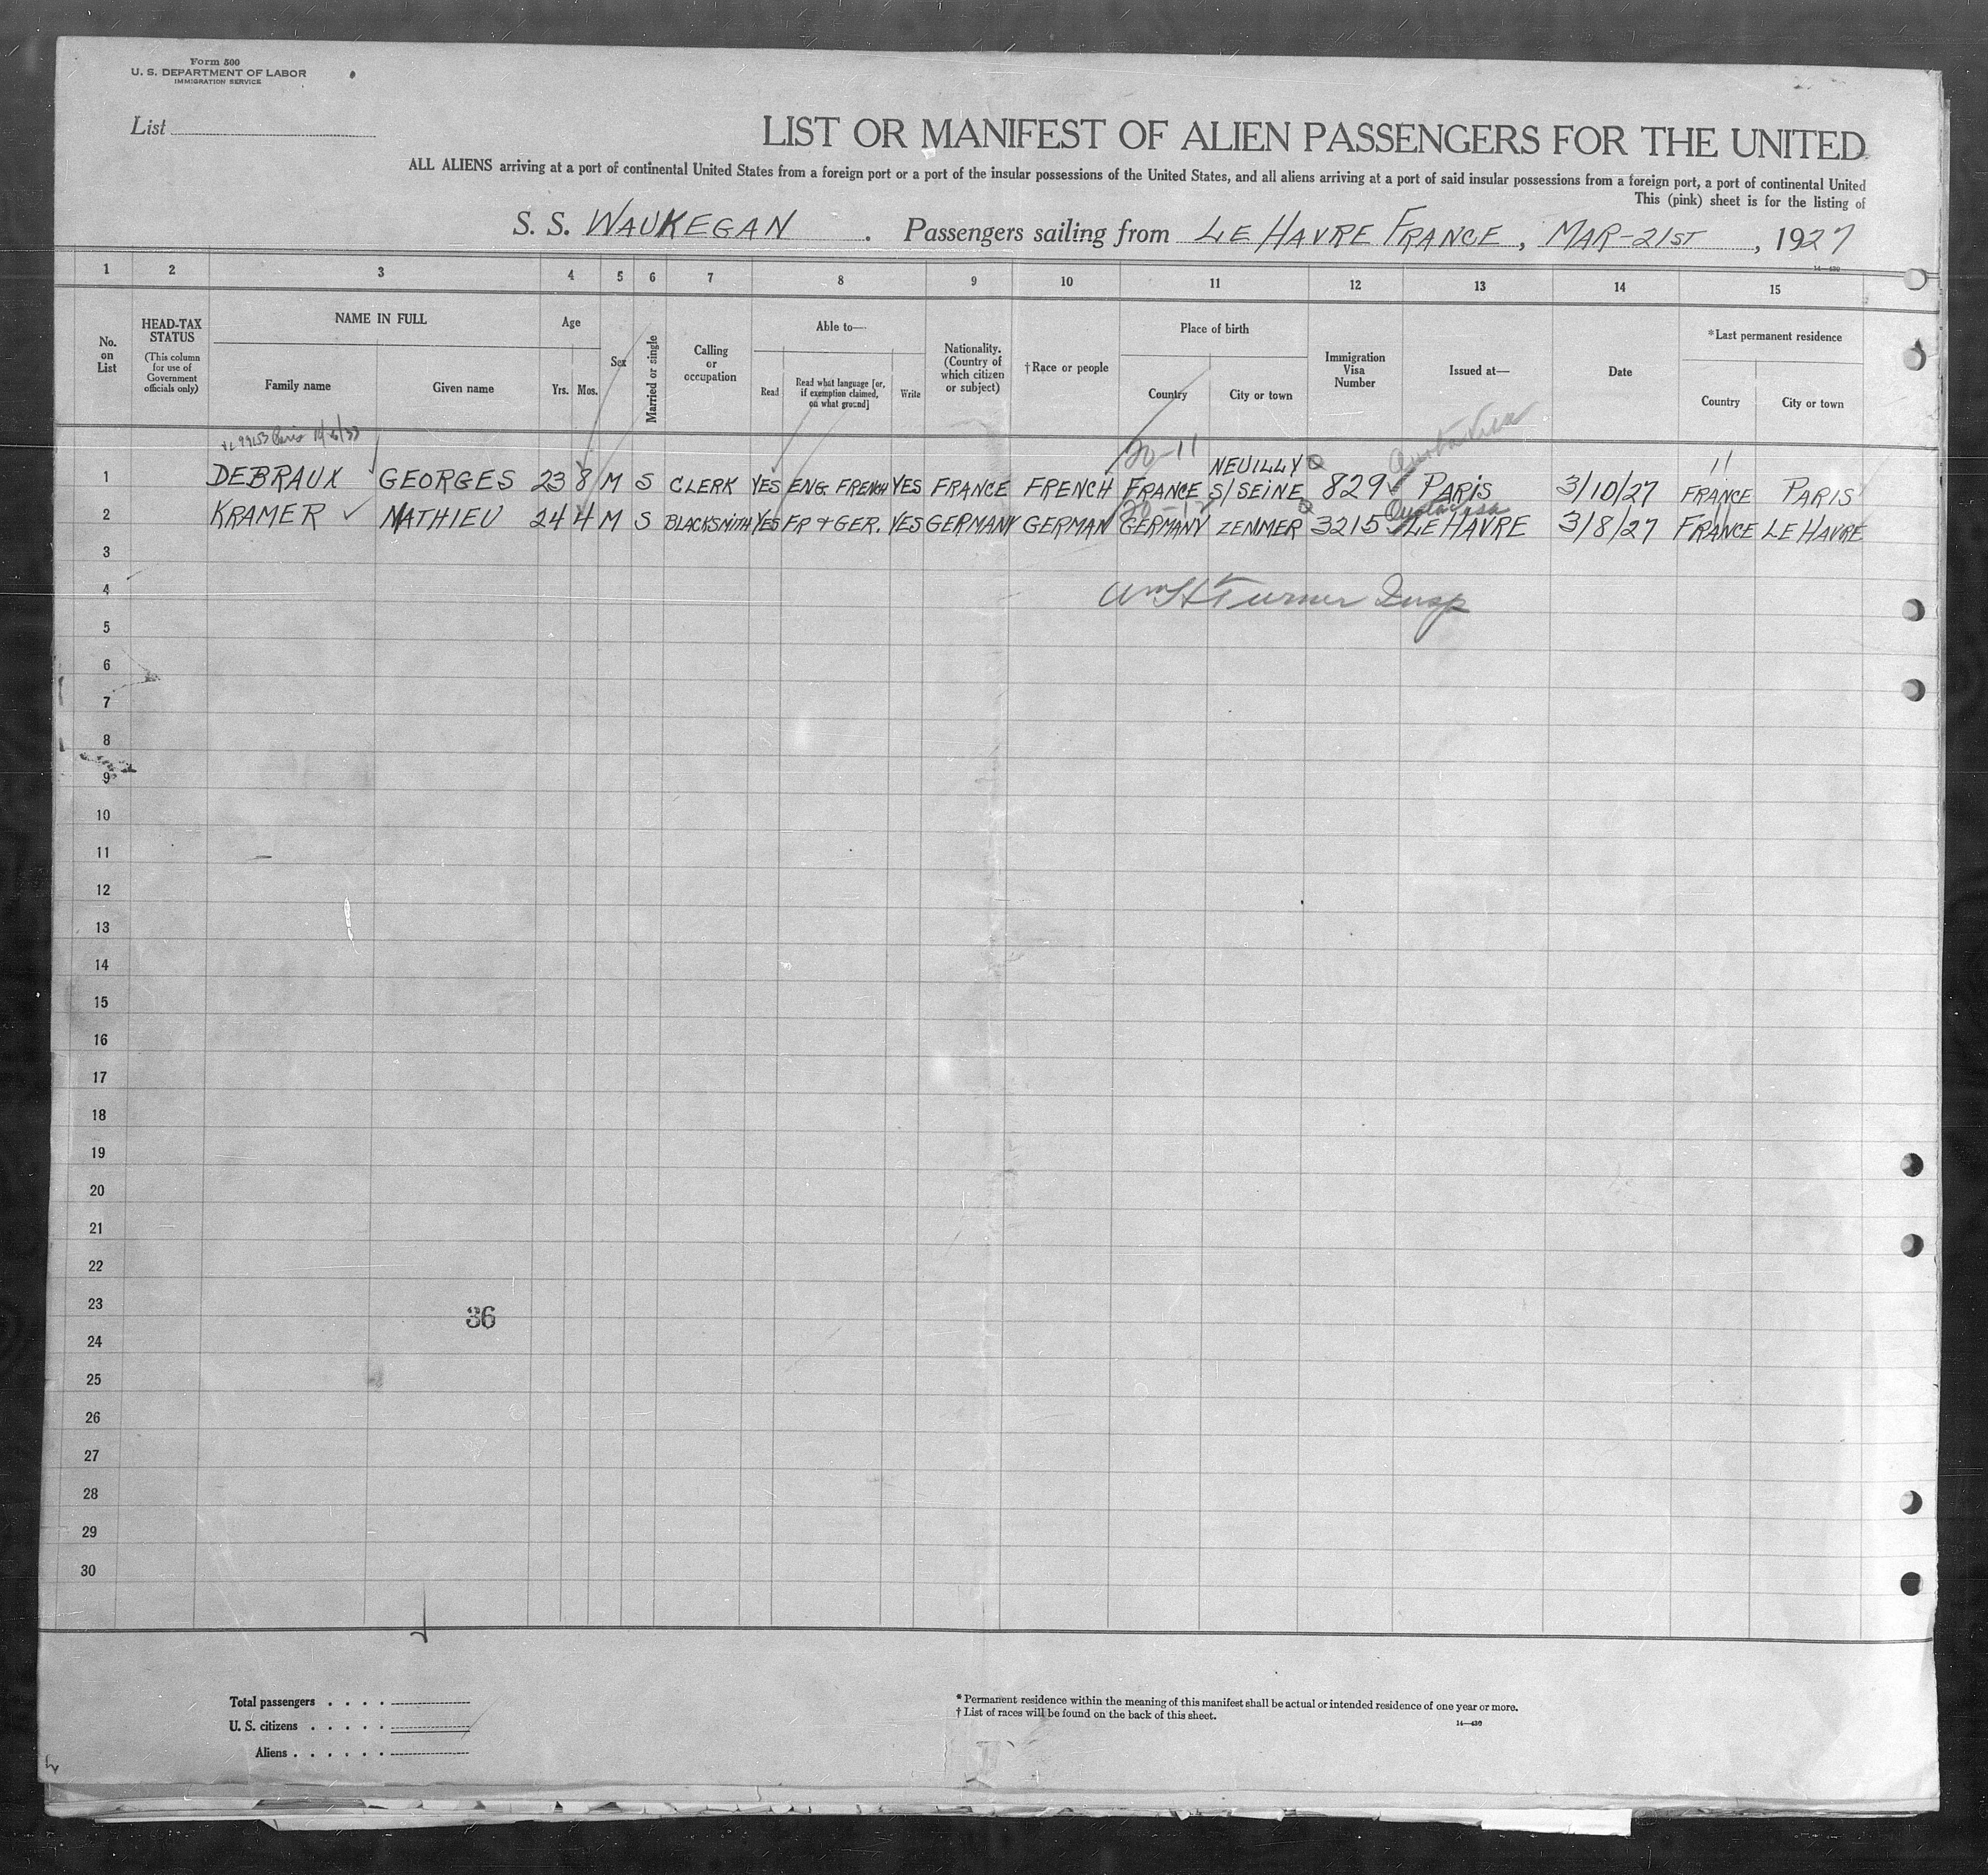 Form 500
U. S. DEPARTMENT OF LABOR
IMMIGRATION SERVICE
List
LIST OR MANIFEST OF ALIEN PASSENGERS FOR THE UNITED
ALL ALIENS arriving at a port of continental United States from a foreign port or a port of the insular possessions of the United States, and all aliens arriving at a port of said insular possessions from a foreign port, a port of continental United
This (pink) sheet is for the listing of
S. S. WAUKEGAN . Passengers sailing from LE HAVRE FRANCE, MAR-21ST, 1927
14—430
1 2 3 4 5 6 7 8 9 10 11 12 13 14 15
No. on List
HEAD-TAX STATUS
(This column for use of Government officials only)
NAME IN FULL
Family name
Given name
Age
Yrs. Mos.
Sex
Married or single
Calling or occupation
Able to—
Read
Read what language [or, if exemption claimed, on what ground]
Write
Nationality. (Country of which citizen or subject)
†Race or people
Place of birth
Country
City or town
Immigration Visa Number
Issued at—
Date
*Last permanent residence
Country
City or town
20-11
Quota Visa
11
1 DEBRAUX GEORGES 23 8 M S CLERK YES ENG. FRENCH YES FRANCE FRENCH FRANCE NEUILLY S/SEINE Q 829 PARIS 3/10/27 FRANCE PARIS
Quota Visa
2 KRAMER MATHIEU 24 4 M S BLACKSMITH YES FR + GER. YES GERMANY GERMAN GERMANY ZEMMER Q 3215 LE HAVRE 3/8/27 FRANCE LE HAVRE
3
4 Wm H Turner Insp
5
6
7
8
9
10
11
12
13
14
15
16
17
18
19
20
21
22
23
36
24
25
26
27
28
29
30
Total passengers . . . .
U. S. citizens . . . . .
Aliens . . . . . .
* Permanent residence within the meaning of this manifest shall be actual or intended residence of one year or more.
† List of races will be found on the back of this sheet.
14—430